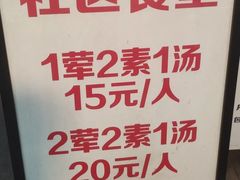 社区食堂
1荤2素1汤
15元/人
2荤2素1汤
20元/人